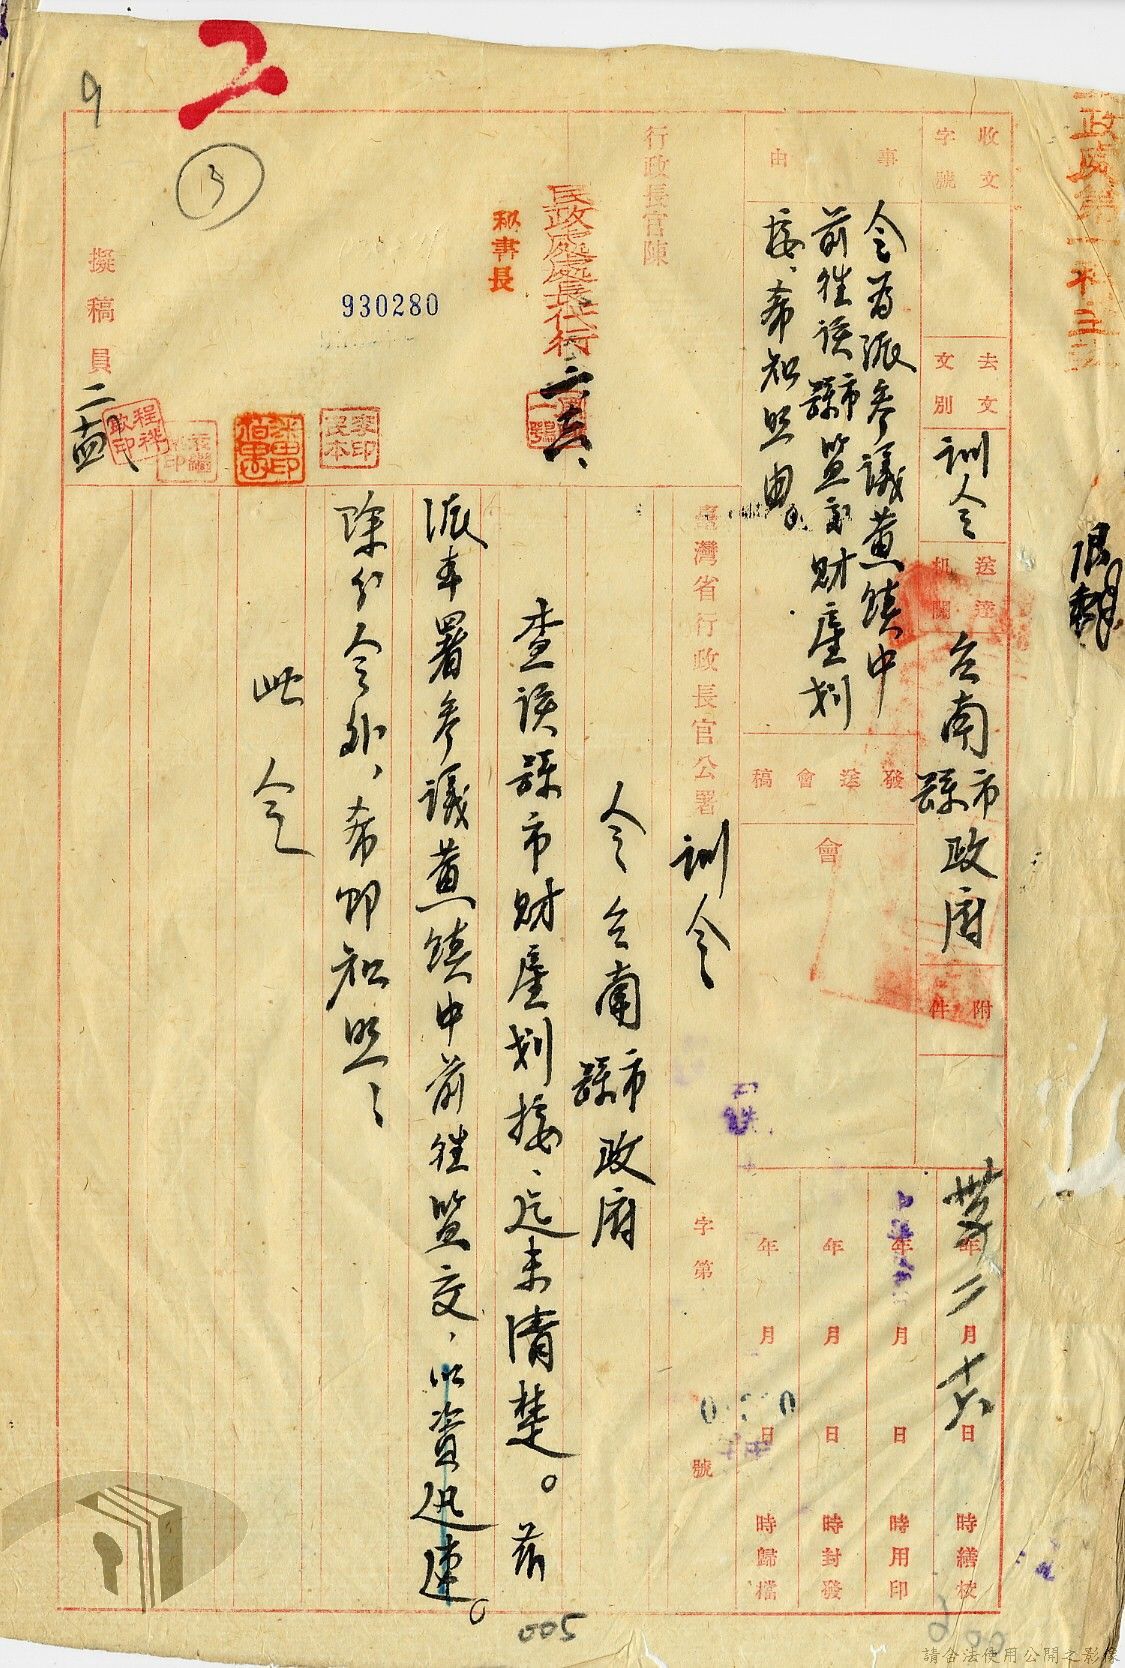 政處第一科主辦
收文
字號
去文
文別
訓令
送達
机關
台南縣市政府
附件
事由
令為派參議黃饒中
前往該縣市監交財產劃
接、希知照由。
發送會稿
會
行政長官陳
民政處處長代行
秘書長
930280
擬稿員
年二月十六日
時繕校
年月日
時用印
年月日
時封發
年月日
時歸檔
臺灣省行政長官公署
訓令
字第
號
令台南縣市政府
查該縣市財產劃接、迄未清楚。茲
派本署參議黃饒中前往監交，以資迅速。
除分令外，希即知照、
此令
9
005
請合法使用公開之影像